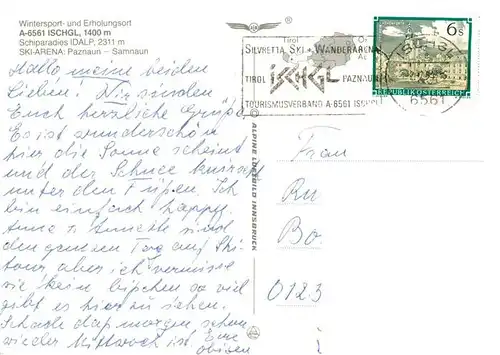 Wintersport- und Erholungsort
A-6561 ISCHGL, 1400 m
Schiparadies IDALP, 2311 m
SKI-ARENA: Paznaun - Samnaun
Hallo meine beiden
Lieben! Wir senden
Euch herzliche Grüße
Es ist wunderschön
hier die Sonne scheint
und der Schnee knirscht
unter den Füßen. Ich
bin einfach happy.
Anne + Annette sind
den ganzen Tag auf Ski-
tour aber ich vermisse
sie kein bißchen so viel
gibt es hier zu sehen.
Schade daß morgen schon
wieder Mittwoch ist. Eure
obigen
© ALPINE LUFTBILD INNSBRUCK
SILVRETTA SKI + WANDERARENA
TIROL ISCHGL PAZNAUN
TOURISMUSVERBAND A-6561 ISCHGL
6s
REPUBLIK ÖSTERREICH
6561
Frau
Ru
Bo
0123